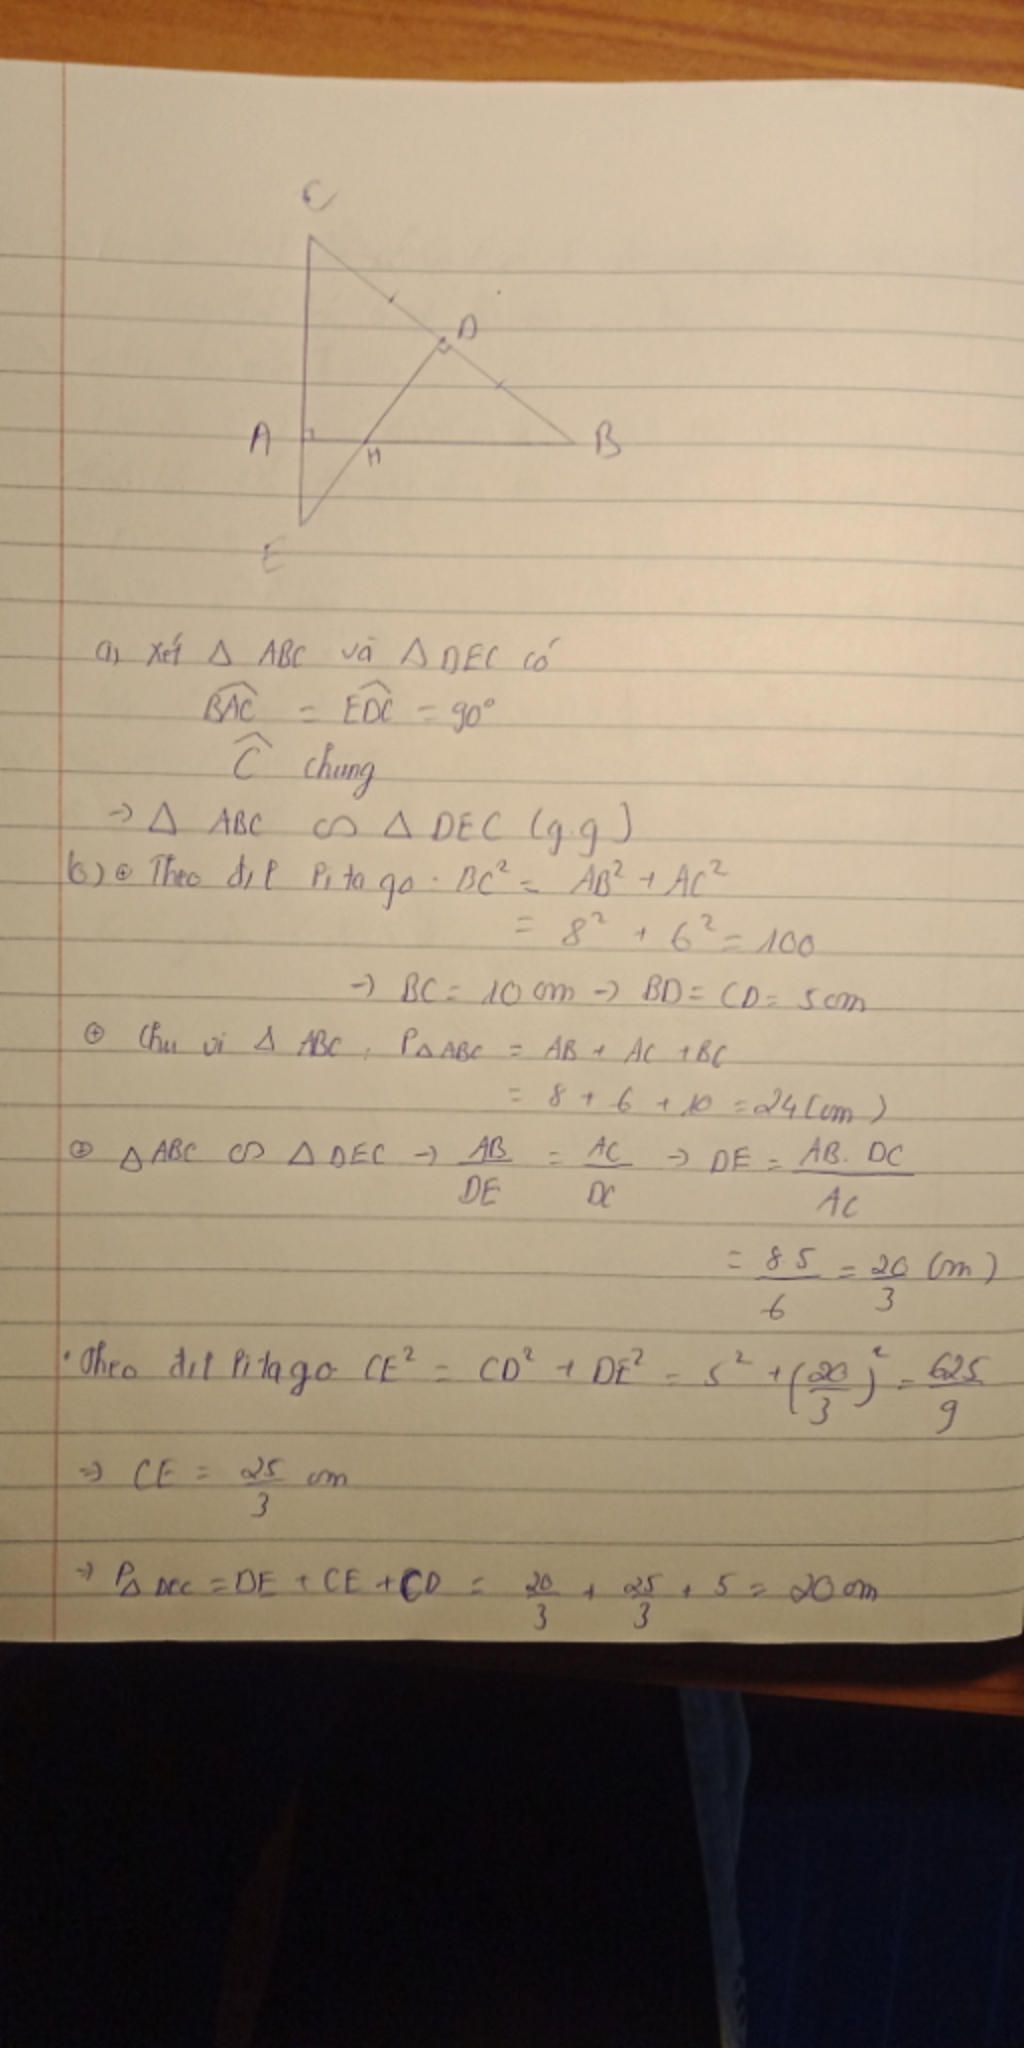 C
D
A
H
B
E
a, Xét Δ ABC và Δ DEC có
BAC^ = EDC^ = 90°
C^ chung
→ Δ ABC ∽ Δ DEC (g.g)
b) ⊕ Theo đ.l Pitago: BC² = AB² + AC²
= 8² + 6² = 100
→ BC = 10 cm → BD = CD = 5cm
⊕ Chu vi Δ ABC: PΔABC = AB + AC + BC
= 8 + 6 + 10 = 24 (cm)
⊕ Δ ABC ∽ Δ DEC → AB/DE = AC/DC → DE = AB. DC/AC
= 8.5/6 = 20/3 (cm)
. Theo đ.l Pitago CE² = CD² + DE² = 5² + (20/3)² = 625/9
⇒ CE = 25/3 cm
→ PΔ DEC = DE + CE + CD = 20/3 + 25/3 + 5 = 20 cm